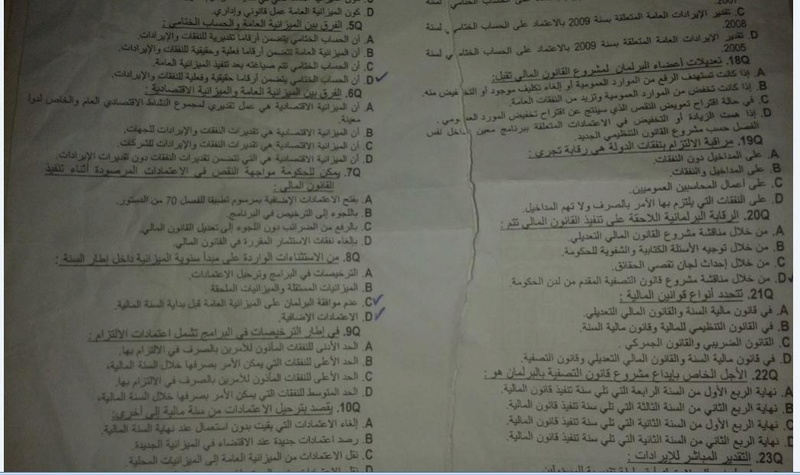 D. كون الميزانية العامة عمل قانوني وإداري.
5Q. الفرق بين الميزانية العامة والحساب الختامي:
A. أن الحساب الختامي يتضمن أرقاما تقديرية للنفقات والإيرادات.
B. أن الميزانية العامة تتضمن أرقاما فعلية وحقيقية للنفقات والإيرادات.
C. أن الحساب الختامي تتم صياغته بعد تنفيذ الميزانية العامة.
D. أن الحساب الختامي يتضمن أرقاما حقيقية وفعلية للنفقات والإيرادات.
6Q. الفرق بين الميزانية العامة والميزانية الاقتصادية:
A. أن الميزانية الاقتصادية هي عمل تقديري لمجموع النشاط الاقتصادي العام والخاص لدولة
معينة.
B. أن الميزانية الاقتصادية هي تقديرات النفقات والإيرادات للجهات.
C. أن الميزانية الاقتصادية هي تقديرات النفقات والإيرادات للشركات.
D. أن الميزانية الاقتصادية هي التي تتضمن تقديرات النفقات دون تقديرات الإيرادات.
7Q. يمكن للحكومة مواجهة النقص في الاعتمادات المرصودة أثناء تنفيذ
القانون المالي:
A. بفتح الاعتمادات الإضافية بمرسوم تطبيقا للفصل 70 من الدستور.
B. باللجوء إلى الترخيص في البرنامج.
C. بالرفع من الضرائب دون اللجوء إلى تعديل القانون المالي.
D. بإلغاء نفقات الاستثمار المقررة في القانون المالي.
8Q. من الاستثناءات الواردة على مبدأ سنوية الميزانية داخل إطار السنة:
A. الترخيصات في البرامج وترحيل الاعتمادات.
B. الميزانيات المستقلة والميزانيات الملحقة
C. عدم موافقة البرلمان على الميزانية العامة قبل بداية السنة المالية.
D. الاعتمادات الإضافية.
9Q. في إطار الترخيصات في البرامج تشمل اعتمادات الالتزام:
A. الحد الأدنى للنفقات المأذون للآمرين بالصرف في الالتزام بها.
B. الحد الأعلى للنفقات التي يمكن الأمر بصرفها خلال السنة المالية.
C. الحد الأعلى للنفقات المأذون للآمرين بالصرف في الالتزام بها.
D. الحد المتوسط للنفقات التي يمكن الأمر بصرفها خلال السنة المالية.
10Q. يقصد بترحيل الاعتمادات من سنة مالية إلى أخرى:
A. إلغاء الاعتمادات التي بقيت بدون استعمال عند نهاية السنة المالية
B. رصد اعتمادات جديدة عند الاقتضاء في الميزانية الجديدة
C. نقل الاعتمادات من الميزانية العامة إلى الميزانيات المحلية
C. تقدير الإيرادات العامة المتعلقة بسنة 2009 بالاعتماد على الحساب الختامي لسنة
2008.
D. تقدير الإيرادات العامة المتعلقة بسنة 2009 بالاعتماد على الحساب الختامي لسنة
2005.
18Q. تعديلات أعضاء البرلمان لمشروع القانون المالي تقبل:
A. إذا كانت تستهدف الرفع من الموارد العمومية أو إلغاء تكليف موجود أو التخفيض منه.
B. إذا كانت تخفض من الموارد العمومية وتزيد من النفقات العامة.
C. في حالة اقتراح تعويض النقص الذي سينتج عن اقتراح تخفيض المورد العمومي.
D. إذا همت الزيادة أو التخفيض في الاعتمادات المتعلقة ببرنامج معين داخل نفس
الفصل حسب مشروع القانون التنظيمي الجديد.
19Q. مراقبة الالتزام بنفقات الدولة هي رقابة تجري:
A. على المداخيل دون النفقات.
B. على المداخيل والنفقات.
C. على أعمال المحاسبين العموميين.
D. على النفقات التي يلتزم بها الآمر بالصرف ولا تهم المداخيل.
20Q. الرقابة البرلمانية اللاحقة على تنفيذ القانون المالي تتم:
A. من خلال مناقشة مشروع القانون المالي التعديلي.
B. من خلال توجيه الأسئلة الكتابية والشفوية للحكومة.
C. من خلال إحداث لجان تقصي الحقائق.
D. من خلال مناقشة مشروع قانون التصفية المقدم من لدن الحكومة.
21Q. تتحدد أنواع قوانين المالية:
A. في قانون مالية السنة والقانون المالي التعديلي.
B. في القانون التنظيمي للمالية وقانون مالية السنة.
C. القانون الضريبي والقانون الجمركي
D. في قانون مالية السنة والقانون المالي التعديلي وقانون التصفية.
22Q. الأجل الخاص بإيداع مشروع قانون التصفية بالبرلمان هو:
A. نهاية الربع الأول من السنة الرابعة التي تلي سنة تنفيذ قانون المالية.
B. نهاية الربع الثاني من السنة الثالثة التي تلي سنة تنفيذ قانون المالية.
C. نهاية الربع الأول من السنة الثانية التي تلي سنة تنفيذ قانون المالية.
D. نهاية الربع الثاني من السنة الثانية التي تلي سنة تنفيذ قانون المالية.
23Q. التقدير المباشر للإيرادات: